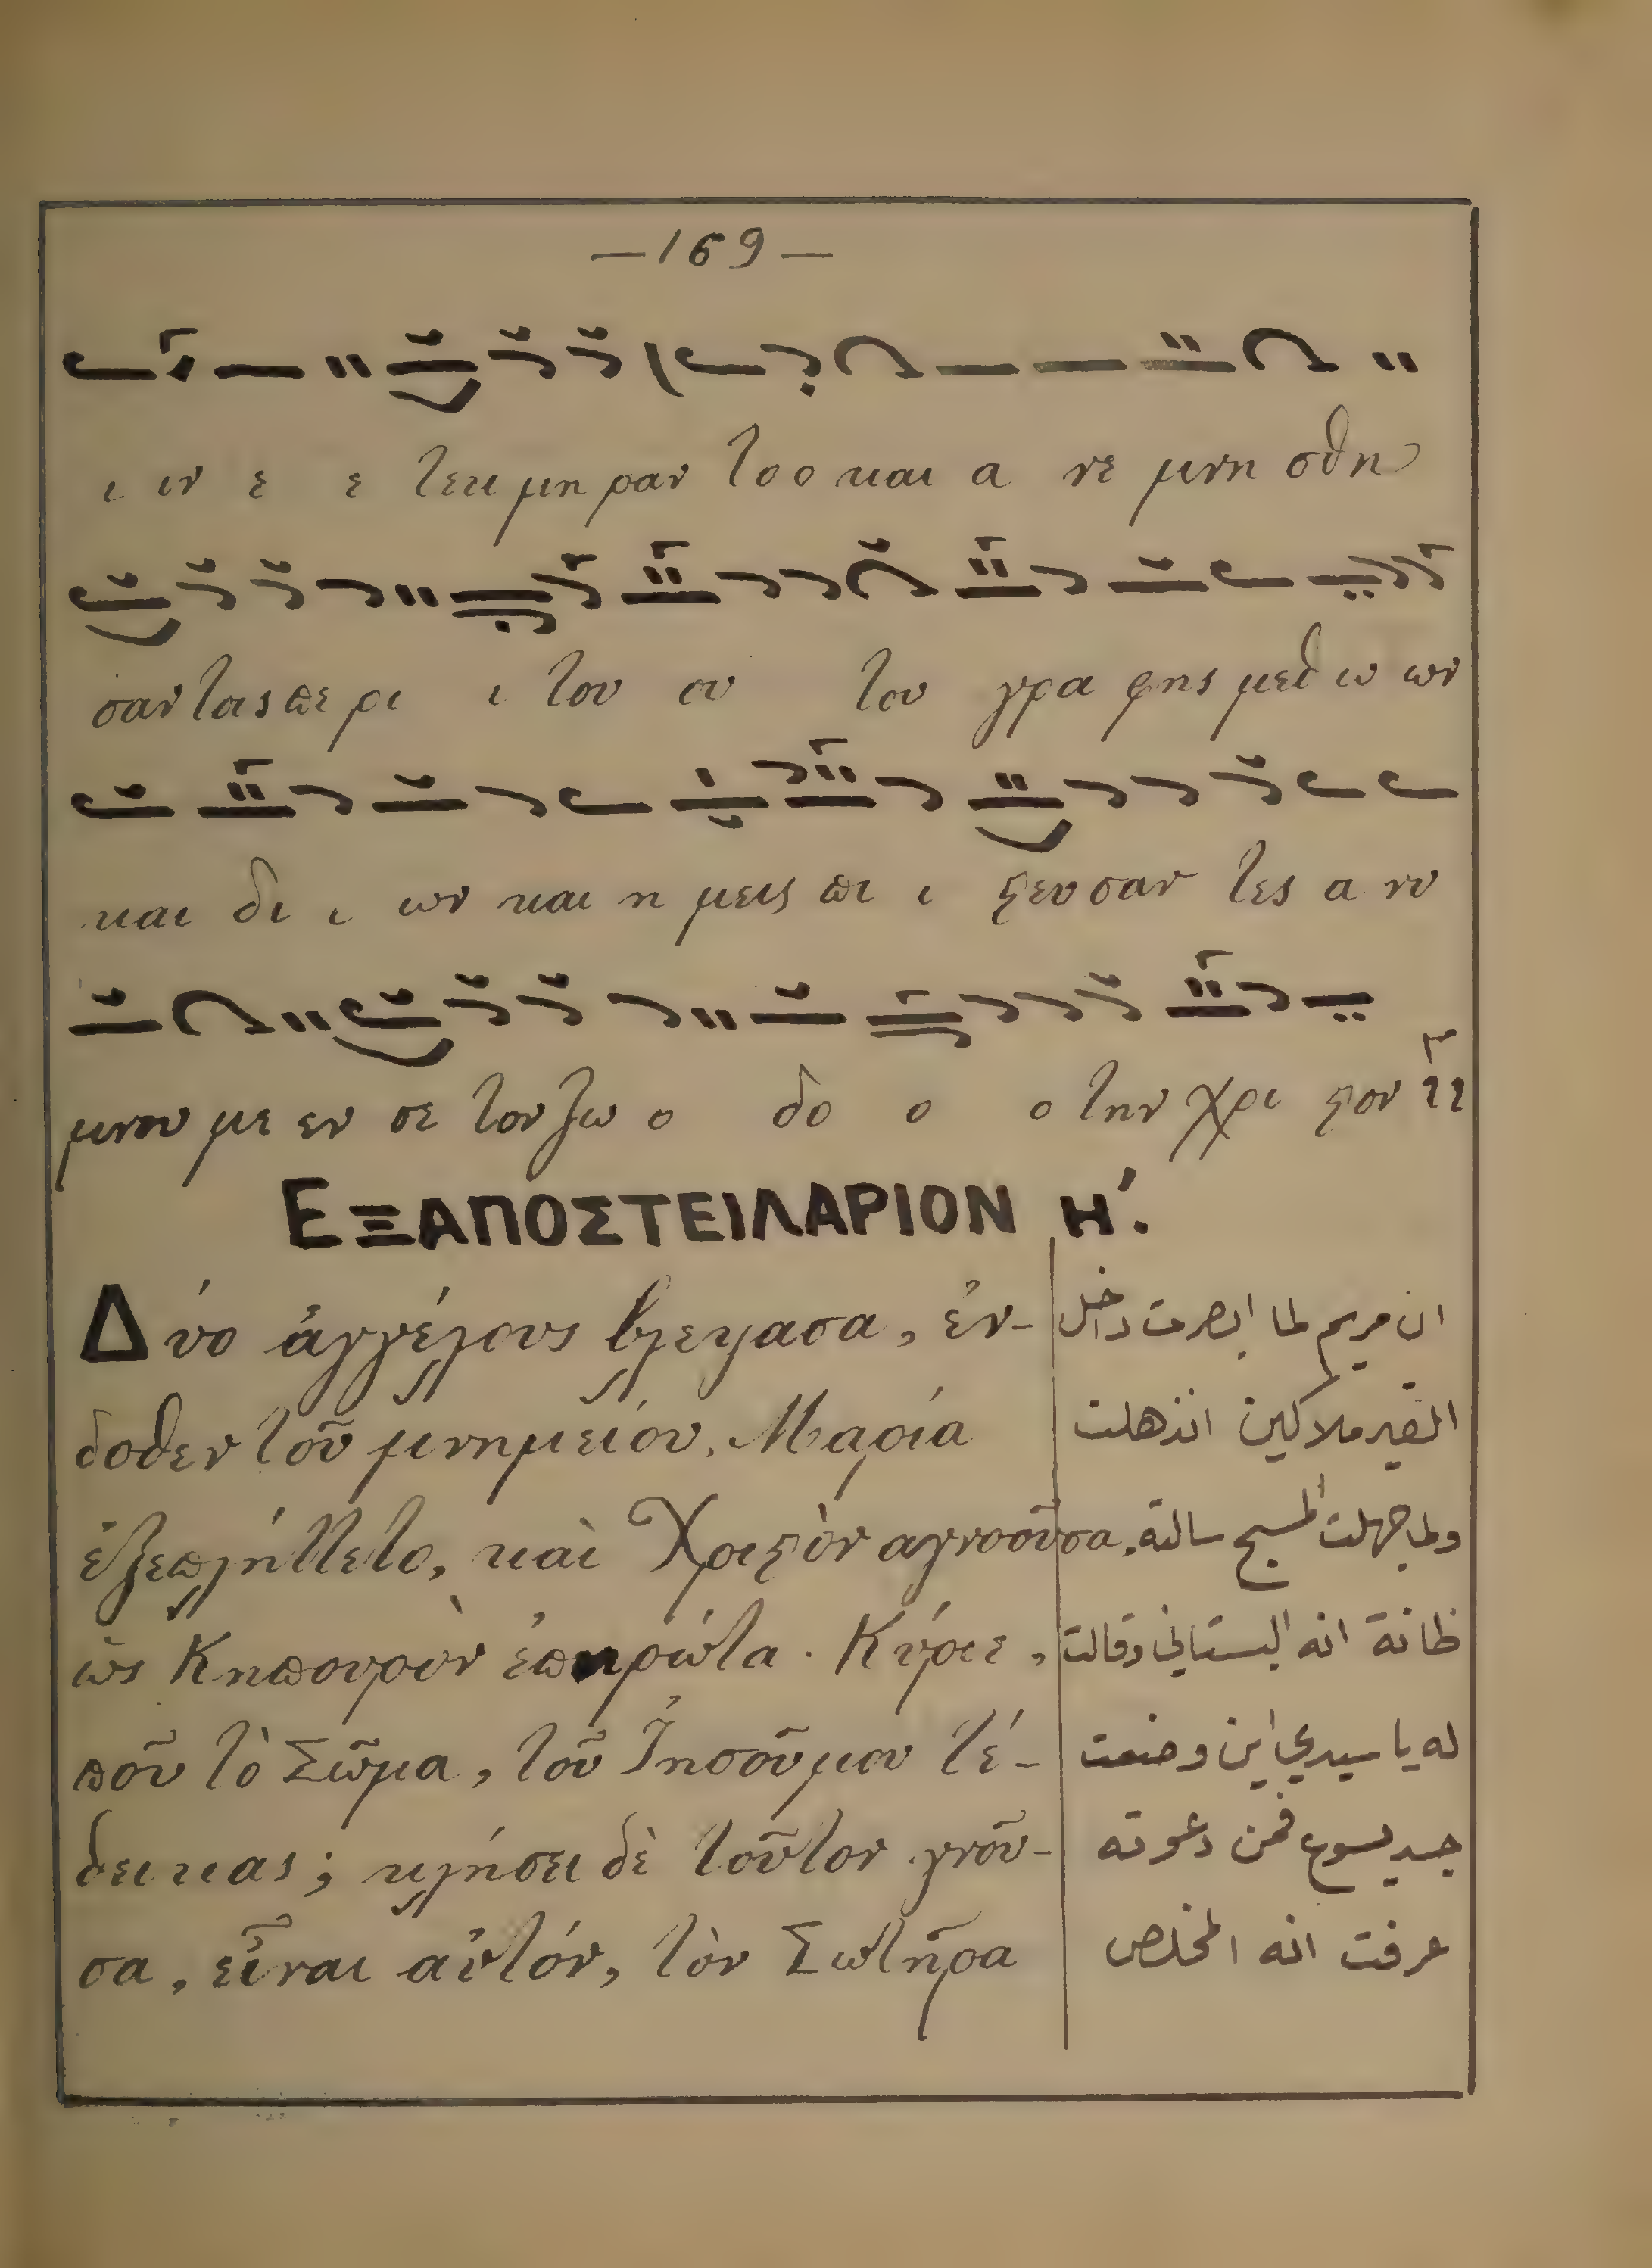 —169—
ι ιν ε ε τεκμηραντο ο και α νεμνησθη
σαν τας περι ι του ου του γραφης μεθ ω ων
και δι ι ων και ημεις πι ι στευσαντες α νυ
μνουμε εν σε τον ζω ο δο ο ο την Χριστον
ΕΞΑΠΟΣΤΕΙΛΑΡΙΟΝ Η΄.
Δύο ἀγγέλους βλεψασα, ἐν-
δοθεν τοῦ μνημείου, Μαρία
ἐξεπλήττετο, καὶ Χριστὸν αγνοοῦσα,
ὡς Κηπουρὸν ἐπηρώτα. Κύριε,
ποῦ τὸ Σῶμα, τοῦ Ἰησοῦ μου τέ-
θεικας; κλήσει δὲ τοῦτον γνοῦ-
σα, εἶναι αὐτόν, τὸν Σωτῆρα
ان مريم لما ابصرت داخل
القبر ملاكين انذهلت
ولما جهلت المسيح سالته
ظانة انه البستاني وقالت
له يا سيدي اين وضعت
جسد يسوع فمن دعوته
عرفت انه المخلص